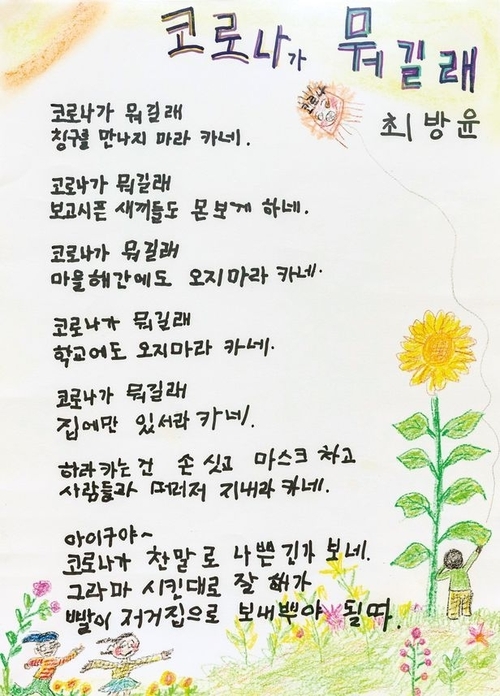 코로나가 뭐길래
코로나
최방윤
코로나가 뭐길래
칭구를 만나지 마라 카네.
코로나가 뭐길래
보고시픈 새끼들도 몬보게 하네.
코로나가 뭐길래
마을해간에도 오지마라 카네.
코로나가 뭐길래
학교에도 오지마라 카네.
코로나가 뭐길래
집에만 있서라 카네.
하라카는건 손 씻고 마스크 차고
사람들과 떠러저 지내라카네.
아이구야~
코로나가 찬말로 나쁜긴가 보네.
그라마 시킨대로 잘 해가
빨이 저거집으로 보내뿌야 될따.